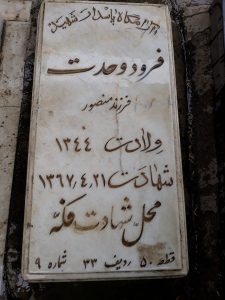 آرامگاه پاسدار شهید
فرود وحدت
فرزند منصور
ولادت ۱۳۴۴
شهادت ۱۳۶۷٫۴٫۲۱
محل شهادت فکه
قطعه ۵۰ ردیف ۳۳ شماره ۹